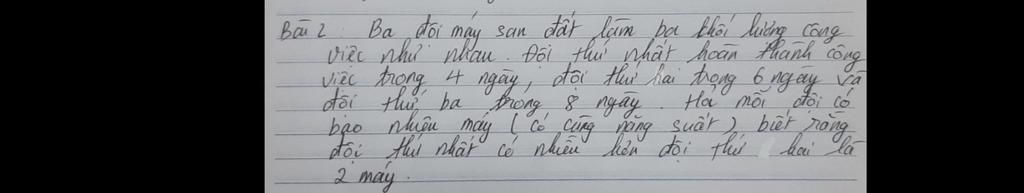 Bài 2: Ba đội máy san đất làm ba khối lượng công
việc như nhau. Đội thứ nhất hoàn thành công
việc trong 4 ngày, đội thứ hai trong 6 ngày và
đội thứ ba trong 8 ngày. Hỏi mỗi đội có
bao nhiêu máy (có cùng năng suất) biết rằng
đội thứ nhất có nhiều hơn đội thứ hai là
2 máy.